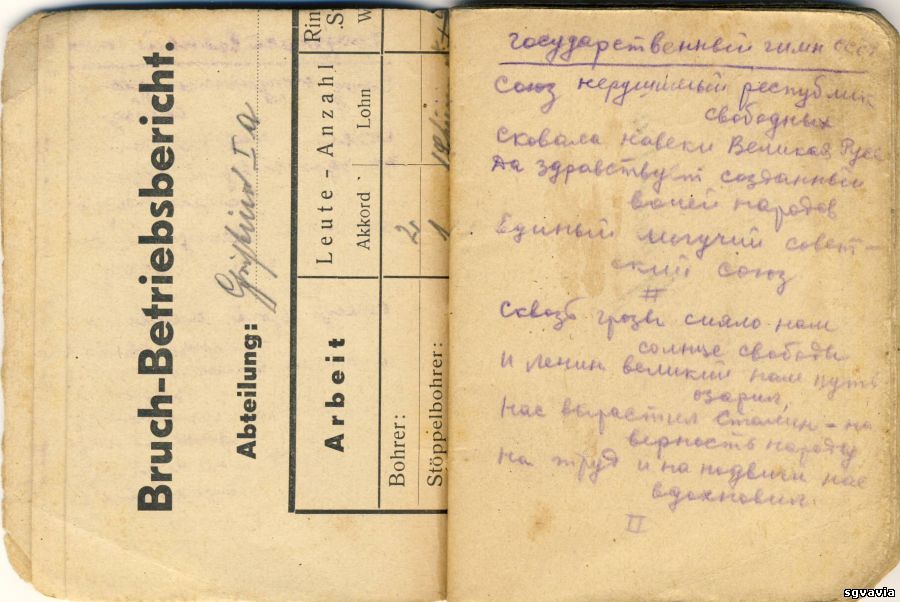 Bruch-Betriebsbericht.
Abteilung:
Arbeit
Leute - Anzahl
Akkord
Lohn
Rin
Bohrer: 2
Stöppelbohrer: 1
государственный гимн СССР
Союз нерушимый республик
свободных
Сковала навеки Великая Русь
Да здравствует созданный
волей народов
Единый могучий совет-
ский союз
#
Сквозь грозы сияло нам
солнце свободы
И Ленин великий нам путь
озарил,
Нас вырастил Сталин - на
верность народу
На труд и на подвиги нас
вдохновил.
II
sgvavia